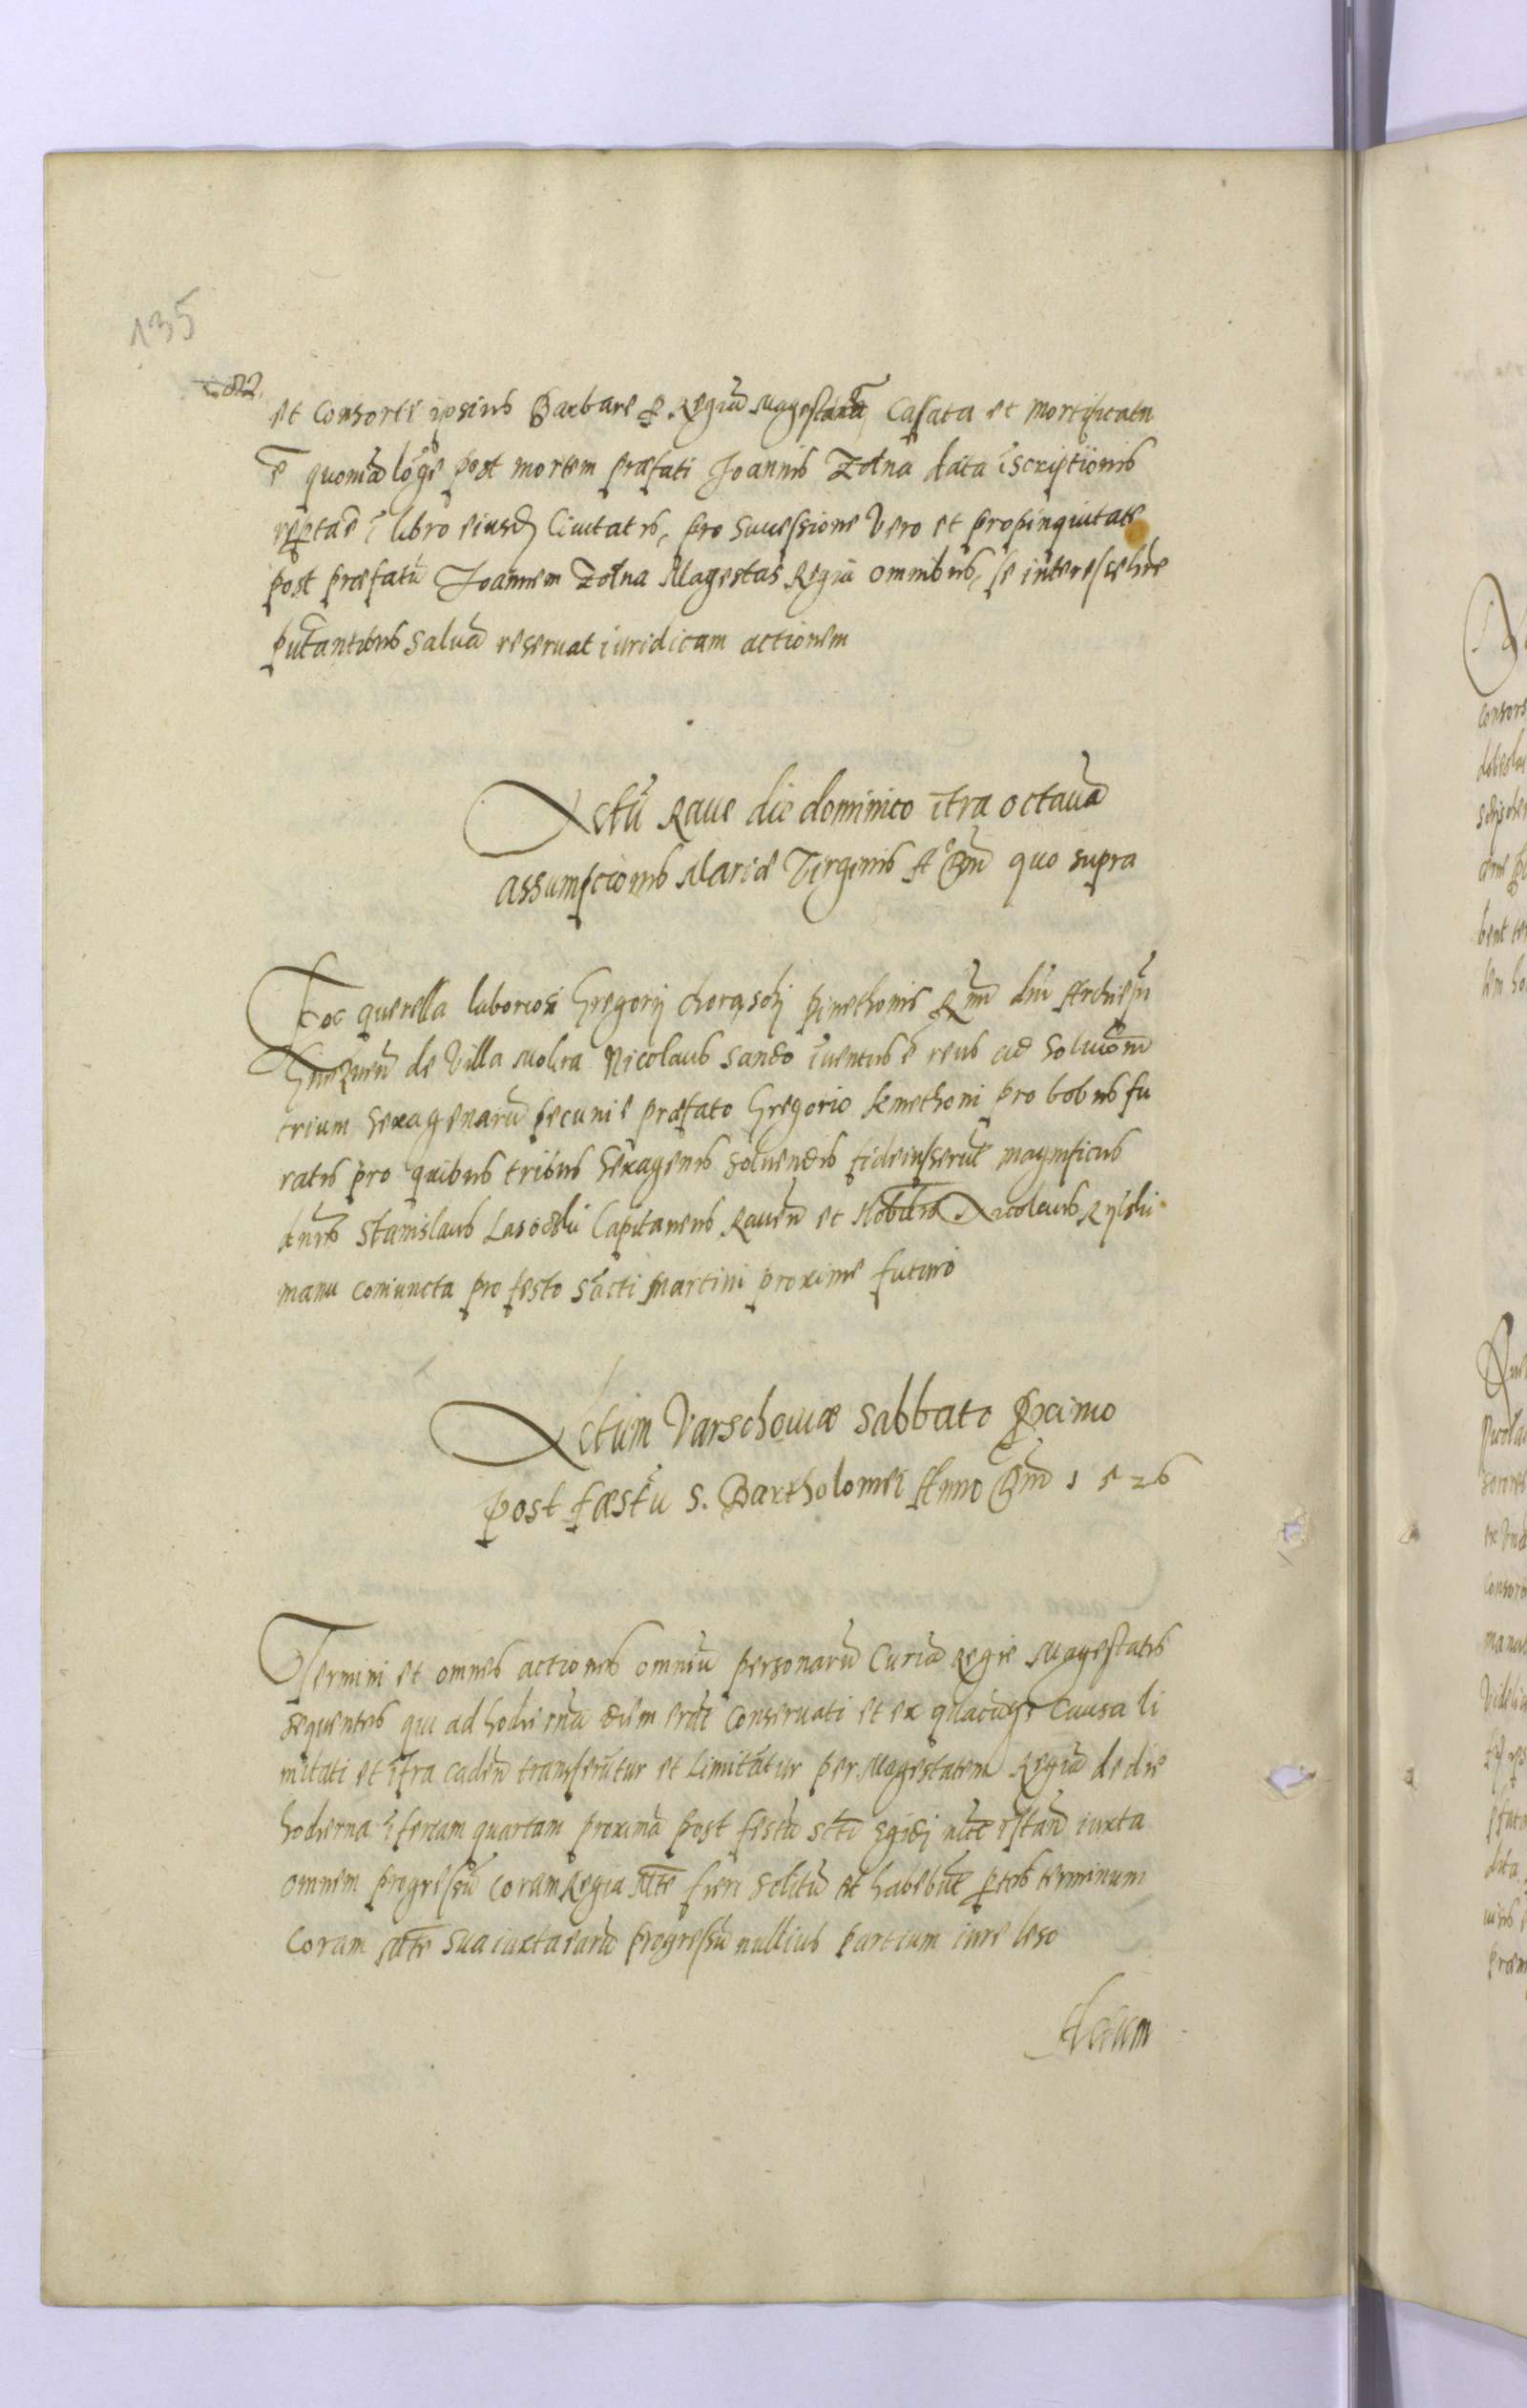 135
et Consorte ipsius Barbare p Regiā Magestatē Casata et mortificata
ē quoniā lōge post mortem præfati Joannis Zolna data īscriptionis
repta ē ī libro eiusdē Ciuitatis, pro Successione vero et propinquitate
post præfatū Joannem Zolna Magestas Regia omnibus, se interesse hre
putantibus saluā reseruat iuridicam actionem
Actū Raue die dominico ītra octauā
assumpcionis Mariæ Virginis Aº Dnī quo supra
Hoc querella laboriosi Gregorij kmethonis dnī Archiepi
Gneznen̄ de Villa Mokra Nicolaus Sando īuentus ē reus ad Solucionē
trium sexagenarū pecunie præfato Gregorio kmethoni pro bobus fu
ratis pro quibus tribus sexagenis soluendis fideiusserūt magnificus
dnūs Stanislaus Lasoczki Capitaneus Rauen̄ et Nobilis Nicolaus Rylski
manu coniuncta pro festo Sācti Martini proxime futuro
Actum Varschouiæ Sabbato Proximo
post fæstū S. Bartholomei Anno Dnī 1526
Termini et omnes actiones omniū personarū Curiā Regie Magestatis
sequentes qui ad hodiernā diem erāt Conseruati et ex quacūqz Causa li
mitati et īfra caden̄ transferūtur et Limitātur per Magestatem Regiā de die
hodierna ī feriam quartam proximā post festū scti Egidij nūc īstan̄ iuxta
omnem progressū coram Regia Mte fieri Solitū et habebūt ptes terminum
Coram Mte Sua iuxta earū progressū nullius partium iure leso
Actum